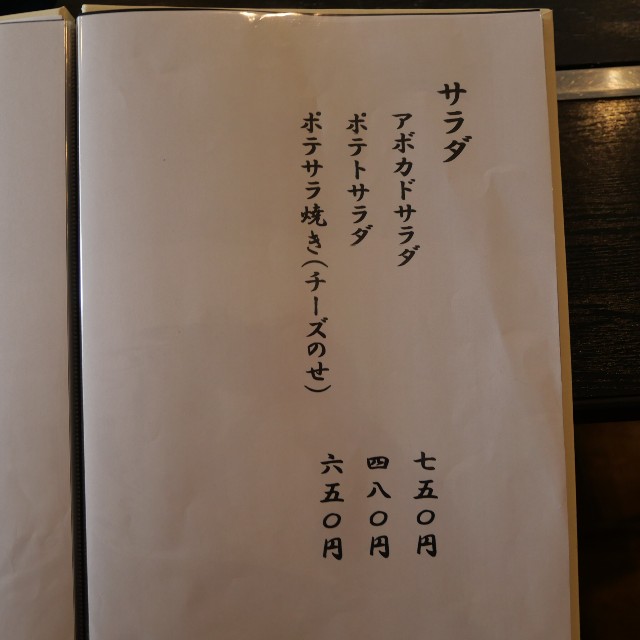 サラダ
アボカドサラダ 七五〇円
ポテトサラダ 四八〇円
ポテサラ焼き(チーズのせ) 六五〇円